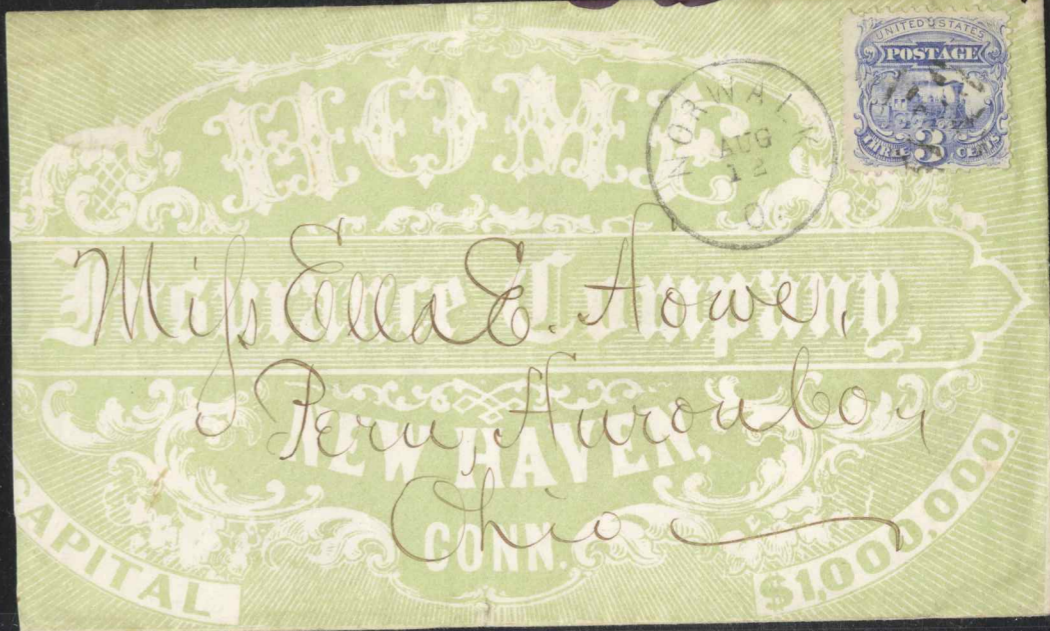 HOME
Insurance Company,
NEW HAVEN,
CONN.
CAPITAL
$1,000,000.
NORWALK
AUG
12
O.
UNITED STATES
POSTAGE
THREE 3 CENTS
Miss Ella E. Howe,
Peru, Huron Co,
Ohio